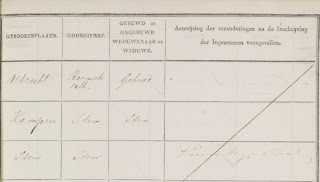 GEBOORTEPLAATS.
GODSDIENST.
GEHUWD of
ONGEHUWD
WEDUWENAAR of
WEDUWE.
Aanwijzing der veranderingen na de Inschrijving
der Ingezetenen voorgevallen.
Utrecht
Gehuwd
Kampen
Idem
Idem
Idem
Idem